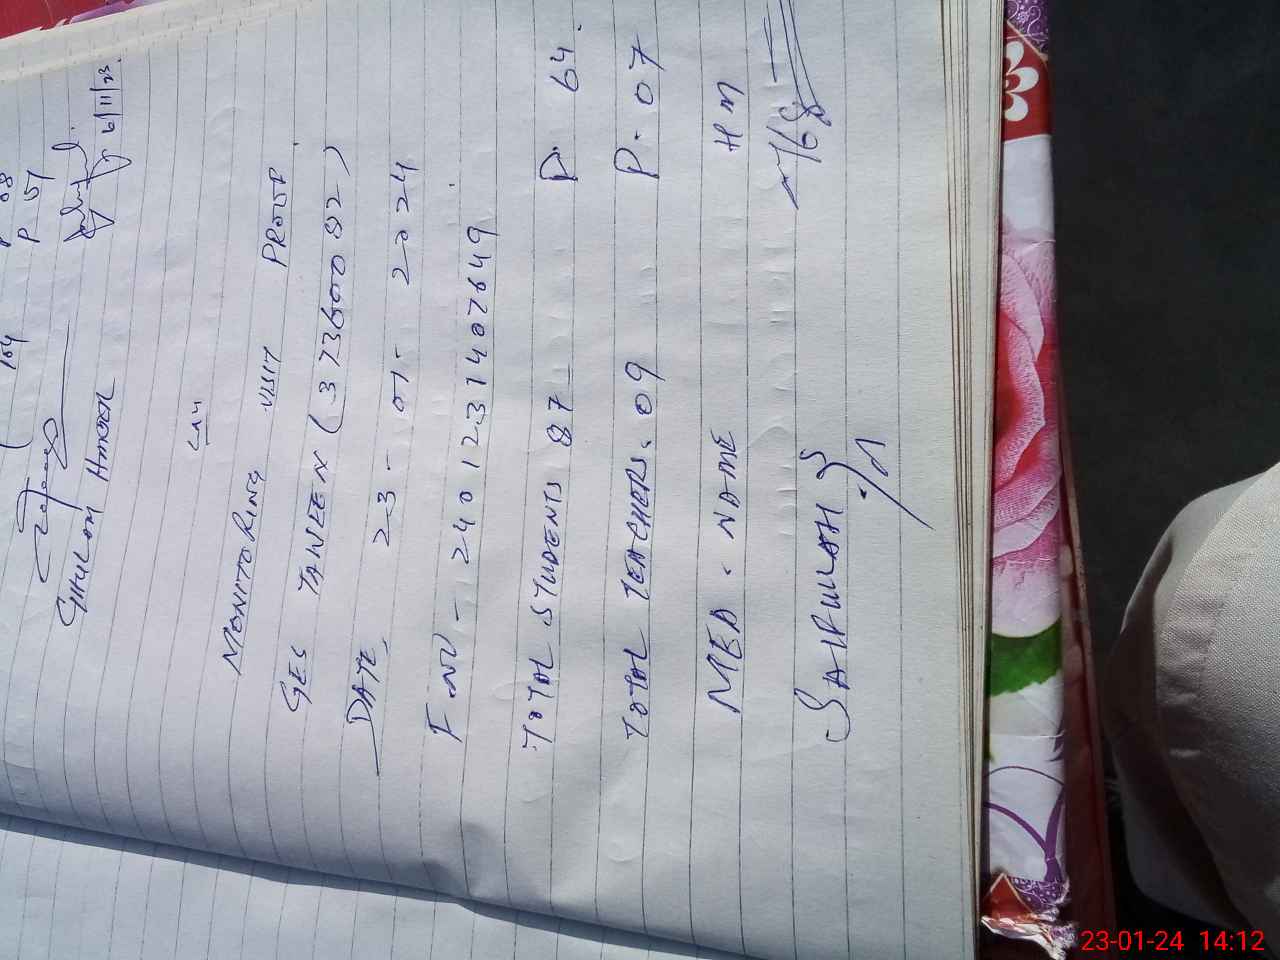 88
P 07
6/11/23
104
GHULAM
MONITORING VISIT PROOF
GES TAWEEN (373600082)
DATE, 23-01-2024
F.NO - 2401231407649
TOTAL STUDENTS 87 P. 64.
TOTAL TEACHERS. 09 P. 07
MEA. NAME HM
SAIFULLAH
23-01-24 14:12